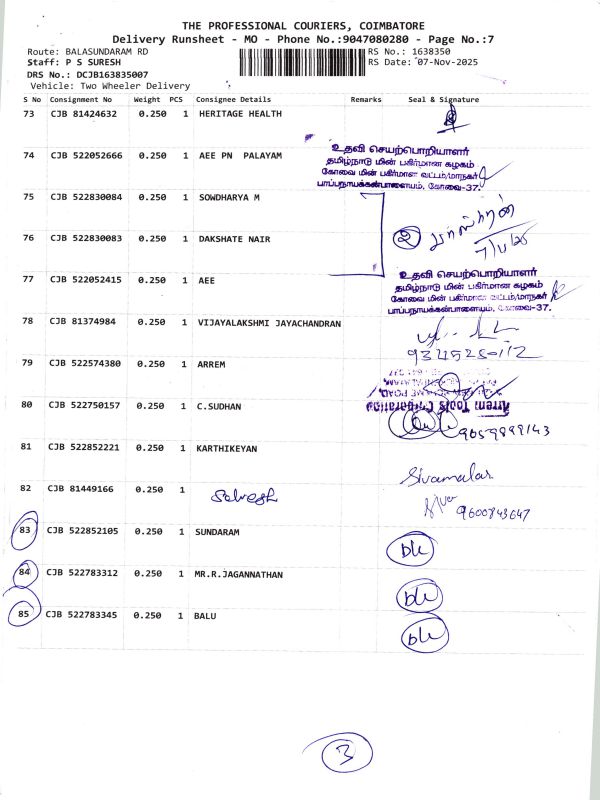 THE PROFESSIONAL COURIERS, COIMBATORE
Delivery Runsheet - MO - Phone No.:9047080280 - Page No.:7
Route: BALASUNDARAM RD
RS No.: 1638350
Staff: P S SURESH
RS Date: 07-Nov-2025
DRS No.: DCJB163835007
Vehicle: Two Wheeler Delivery
S No Consignment No Weight PCS Consignee Details Remarks Seal & Signature
73 CJB 81424632 0.250 1 HERITAGE HEALTH
74 CJB 522052666 0.250 1 AEE PN PALAYAM
உதவி செயற்பொறியாளர்
தமிழ்நாடு மின் பகிர்மான கழகம்
கோவை மின் பகிர்மான வட்டம்/மாநகர்
பாப்பநாயக்கன்பாளையம், கோவை-37.
75 CJB 522830084 0.250 1 SOWDHARYA M
76 CJB 522830083 0.250 1 DAKSHATE NAIR
2
7/11/25
77 CJB 522052415 0.250 1 AEE
உதவி செயற்பொறியாளர்
தமிழ்நாடு மின் பகிர்மான கழகம்
கோவை மின் பகிர்மான வட்டம்/மாநகர்
பாப்பநாயக்கன்பாளையம், கோவை-37.
78 CJB 81374984 0.250 1 VIJAYALAKSHMI JAYACHANDRAN
79 CJB 522574380 0.250 1 ARREM
Arrem Tools Corporation
80 CJB 522750157 0.250 1 C.SUDHAN
9059899143
81 CJB 522852221 0.250 1 KARTHIKEYAN
Sivamalar
82 CJB 81449166 0.250 1
9600843647
83 CJB 522852105 0.250 1 SUNDARAM
84 CJB 522783312 0.250 1 MR.R.JAGANNATHAN
85 CJB 522783345 0.250 1 BALU
3